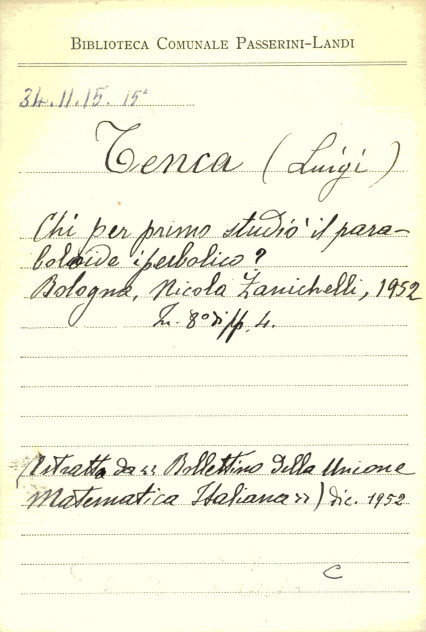 BIBLIOTECA COMUNALE PASSERINI-LANDI
34.11.15. 15°
Tenca (Luigi)
Chi per primo studiò il para-
boloide iperbolico?
Bologna, Nicola Zanichelli, 1952
In 8° di pp. 4.
(Estratto da « Bollettino della Unione
Matematica Italiana ») dic. 1952
C